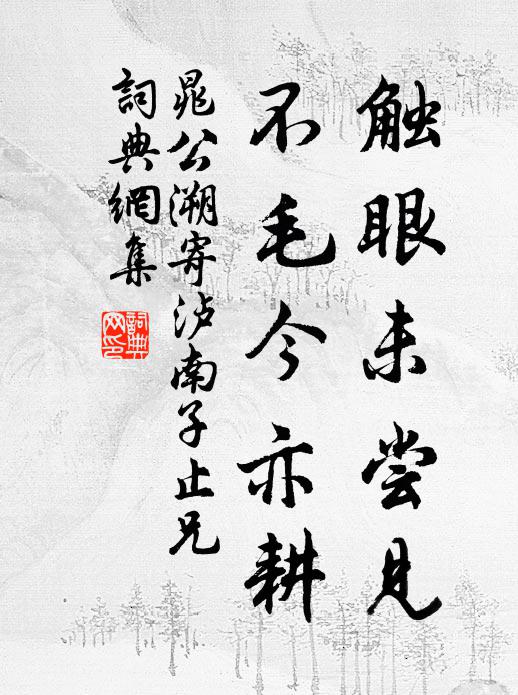 触眼未尝见
不毛今亦耕
晁公溯寄泸南子止兄
詞典網集
詞典網印